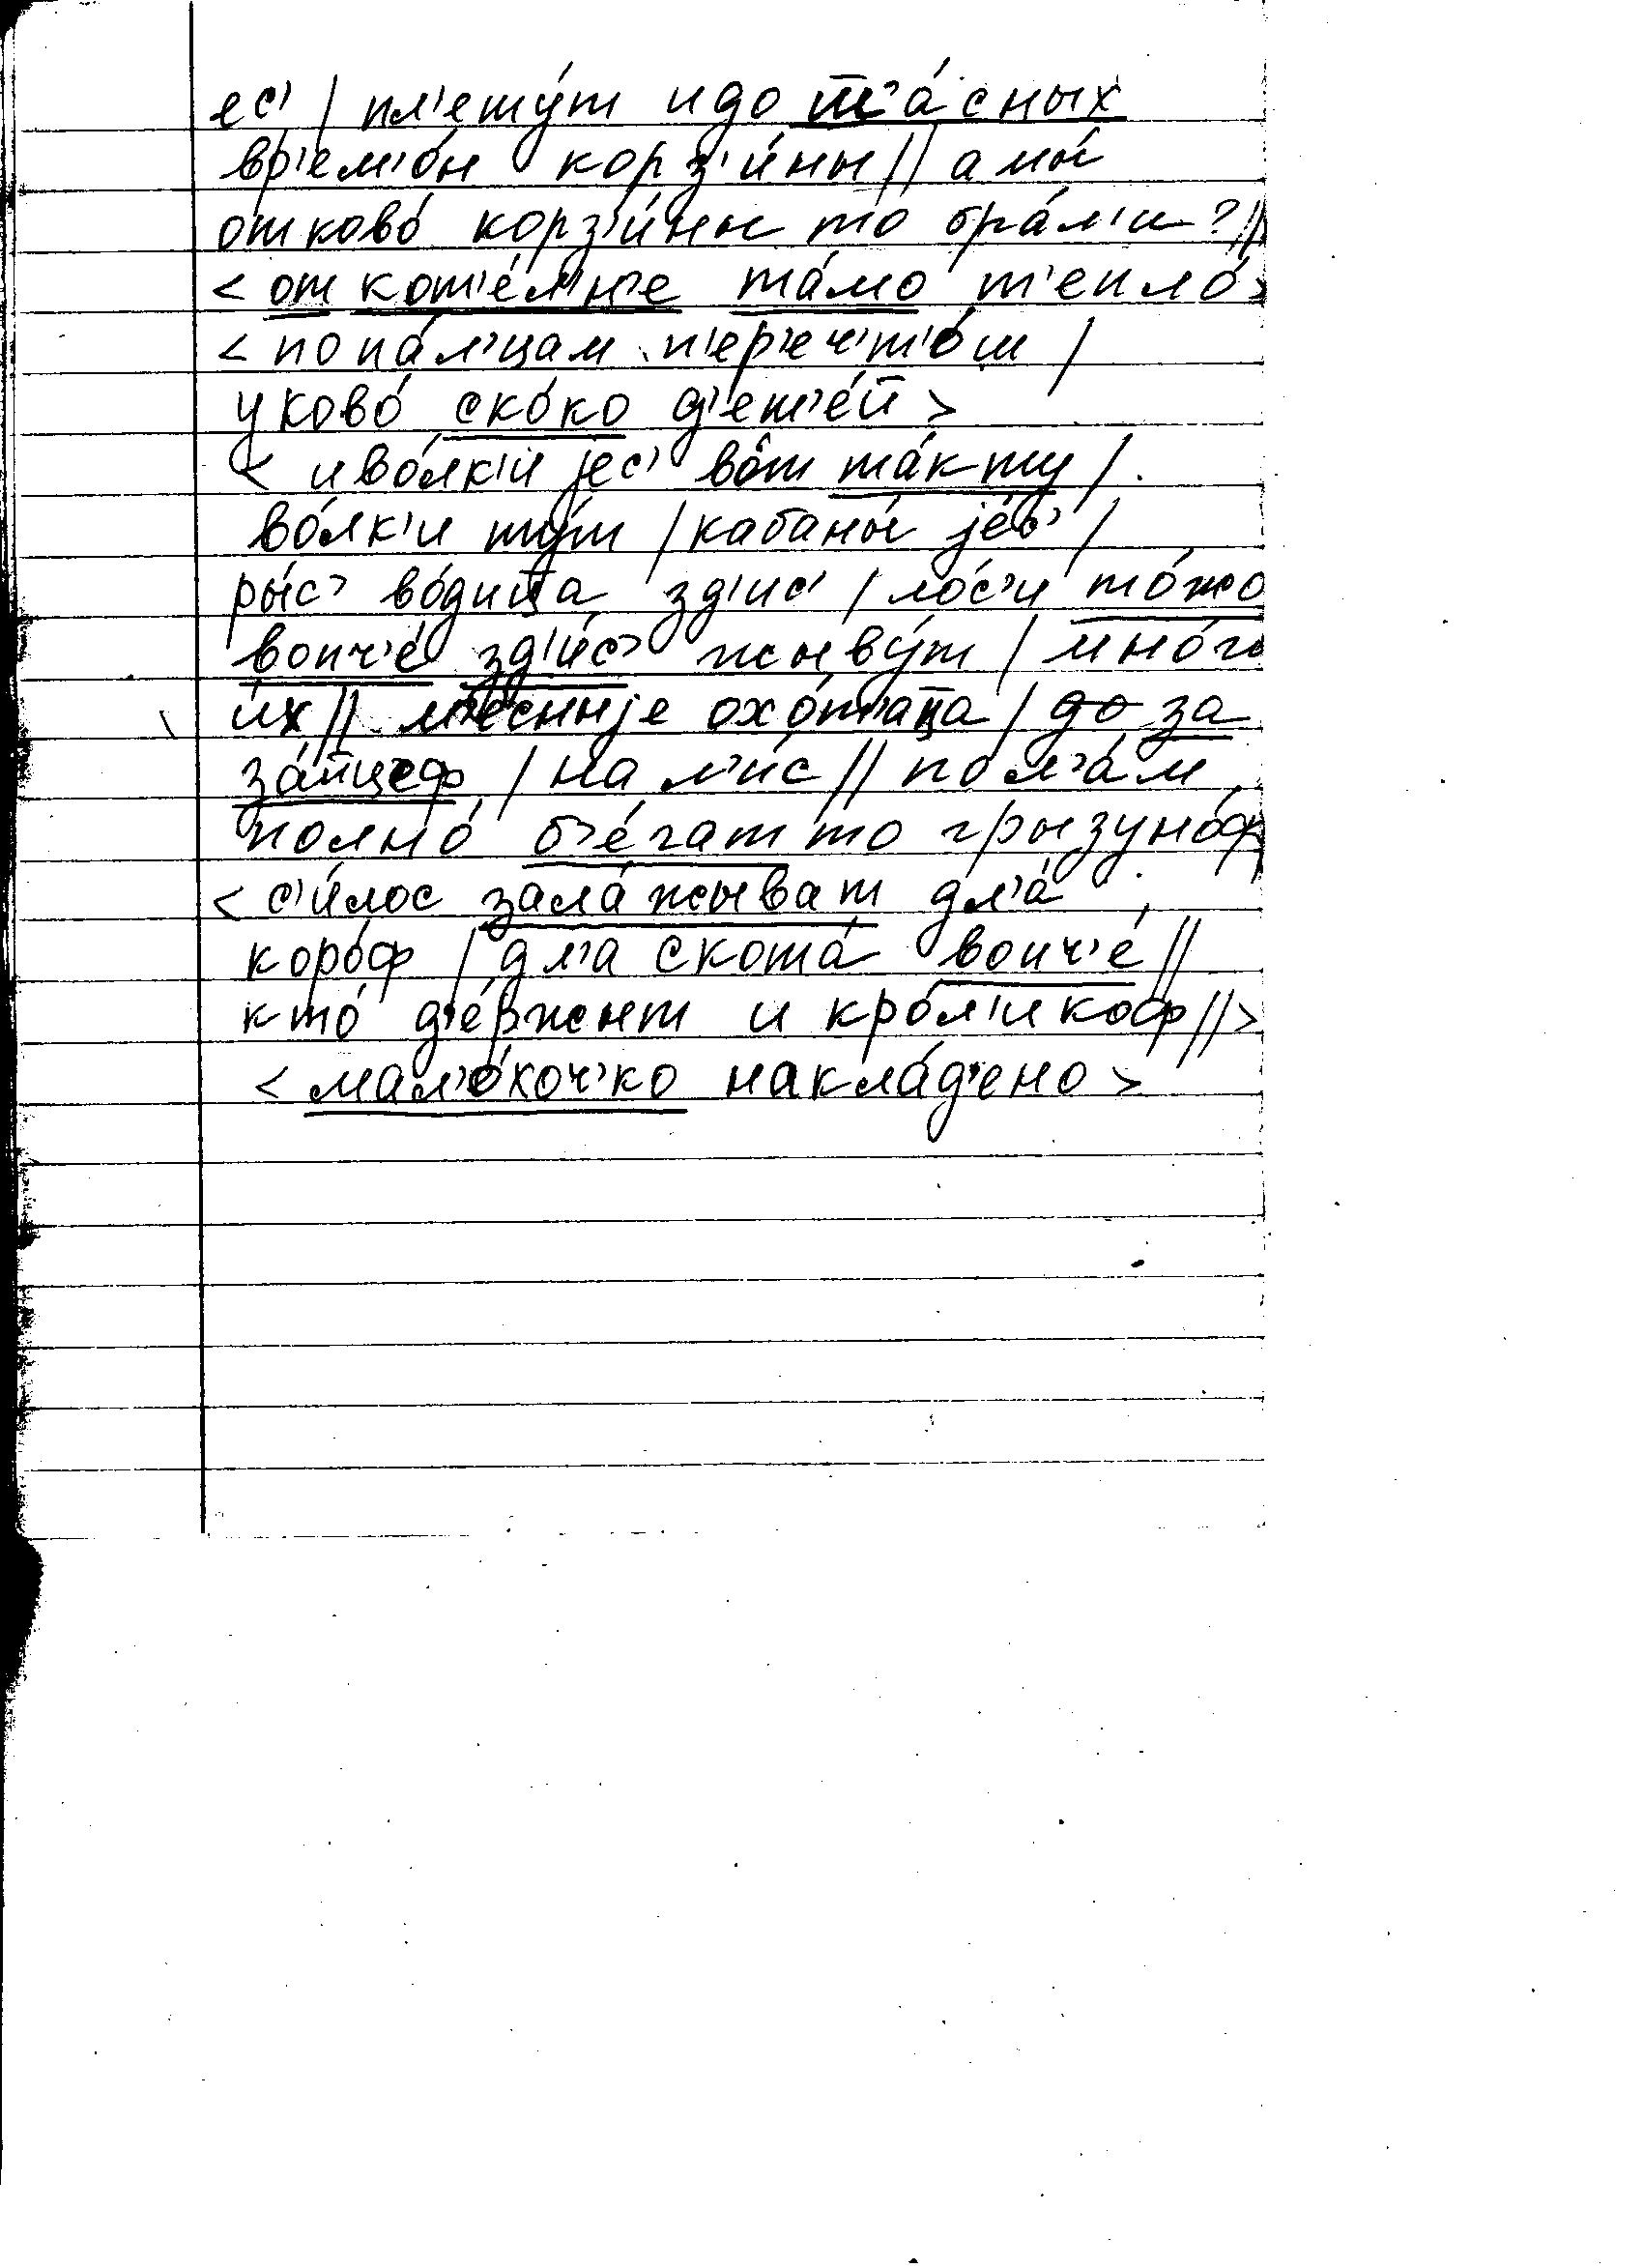 ес' / пл'ету́т и до т'а́сных
вр'ем'о́н корз'и́ны // а мы́
отково́ корз'и́ны то бра́л'и? //
< от кот'е́л'н'е та́мо т'епло́ >
< по па́л'цам п'ер'еч'т'о́ш /
у ково́ ско́ко д'ет'е́й >
< и во́лк'и јес' во̂т та́к ту /
во́лк'и ту́т / кабаны́ је́с' /
ры́с' во́дица зд'ис' / ло́с'и то́жо
вопч'е́ зд'и́с' жыву́т / мно́го
и́х // м'е́сныје охо́т'аца / до за
за́йцеф / на л'и́с // пол'а́м
полно́ б'е́гат то грызуно́ф
< с'и́лос зала́жыват дл'а́
коро́ф / дл'а скота́ вопч'е́ //
кто́ д'е́ржыт и кро́л'икоф // >
< мал'о́хоч'ко накла́д'ено >